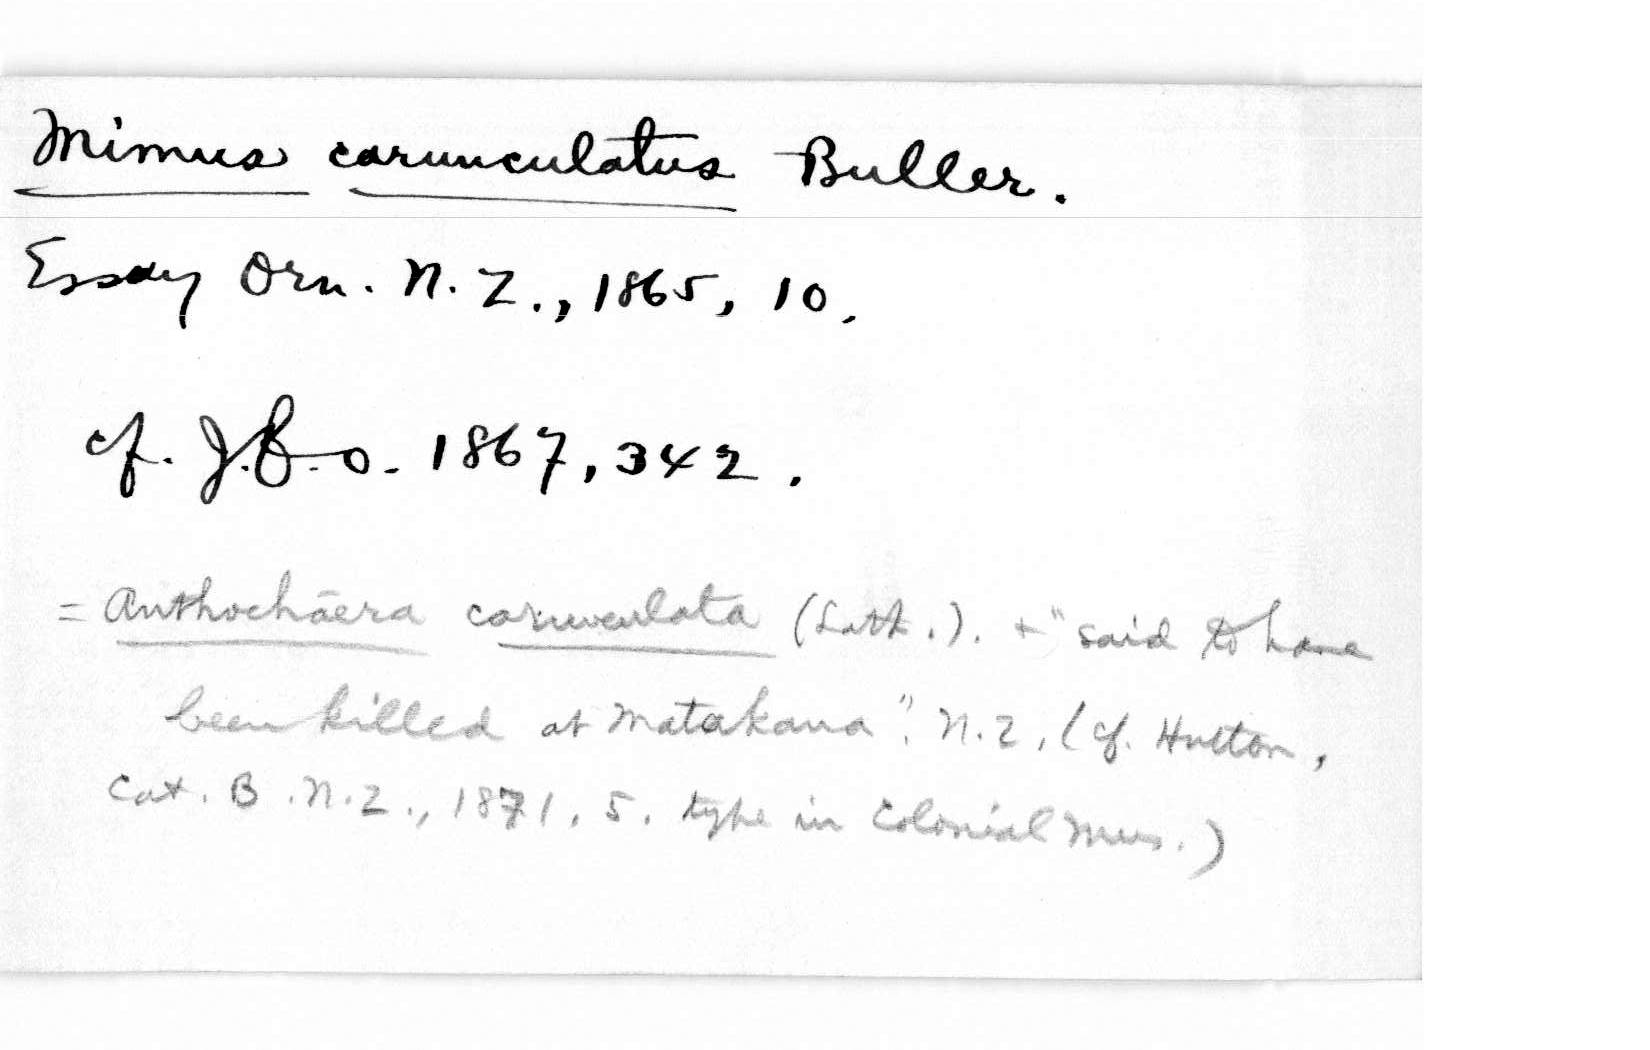 Mimus carunculatus Buller.
Essay Orn. N. Z., 1865, 10.
cf. J.f.O. 1867, 342.
= Anthochaera carunculata (Lath.). + "said to have
been killed at Matakana", N.Z, (cf. Hutton,
Cat. B. N.Z., 1871, 5. type in Colonial Mus.)